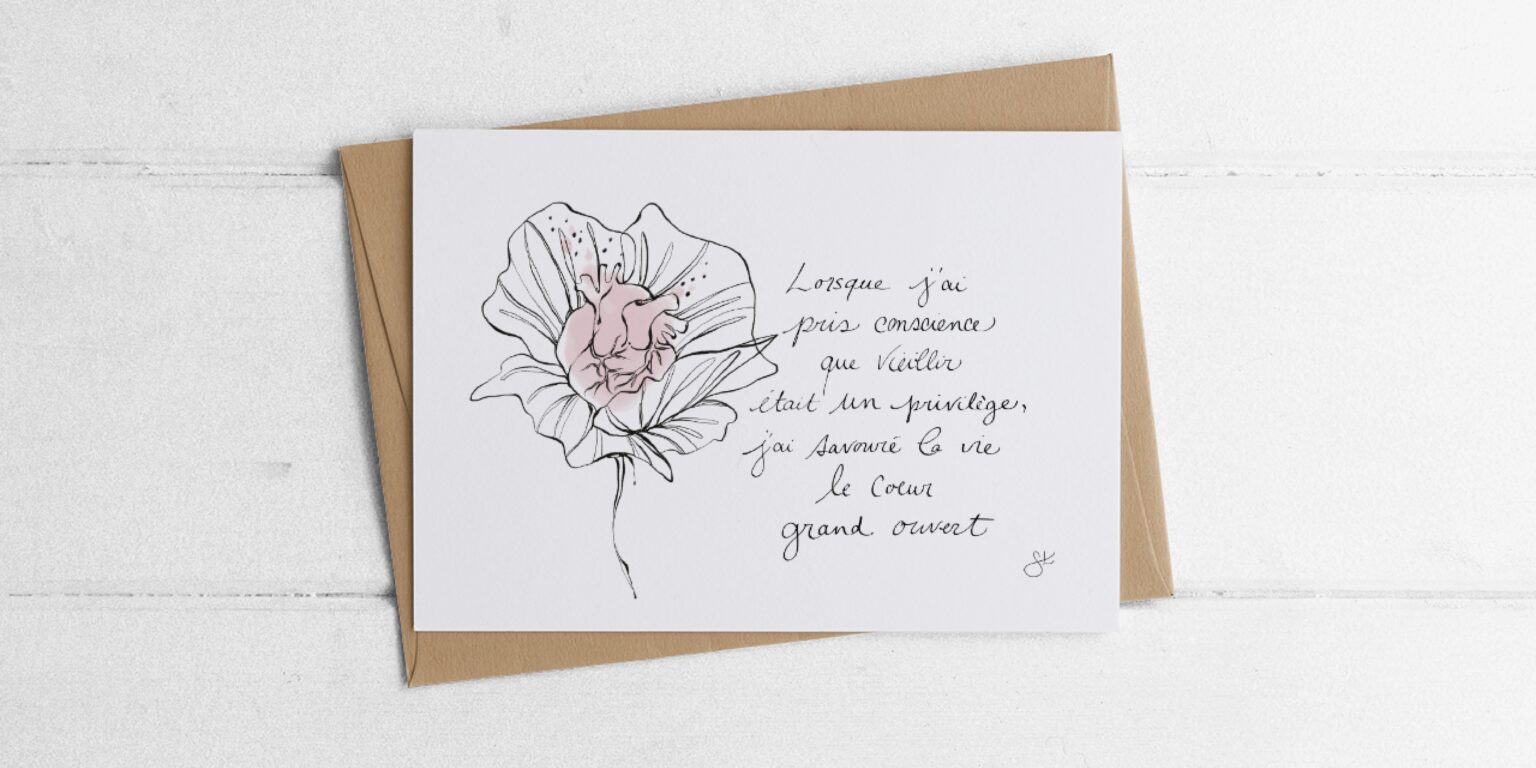 Lorsque j'ai
pris conscience
que vieillir
était un privilège,
j'ai savouré la vie
le coeur
grand ouvert
SK